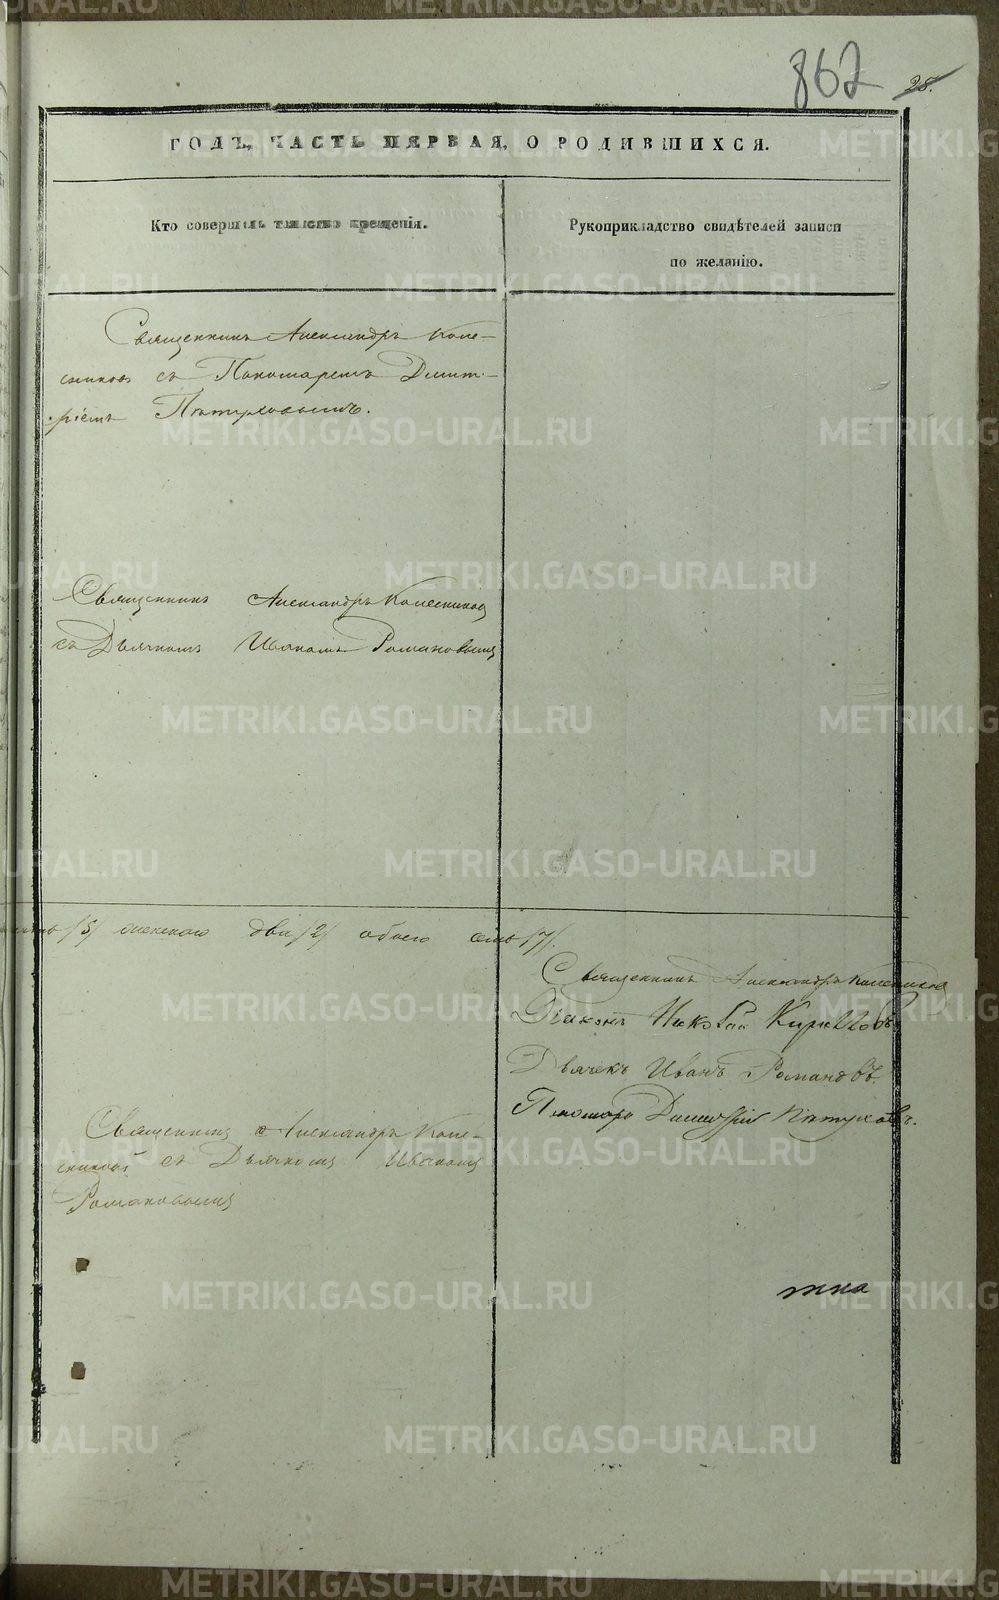 862 28.
ГОДЪ, ЧАСТЬ ПЕРВАЯ, О РОДИВШИХСЯ.
Кто совершалъ таинство крещенія.
Рукоприкладство свидѣтелей записи
по желанію.
Священникъ Александръ Коле-
сниковъ съ Пономаремъ Димит-
ріемъ Пѣтуховымъ.
Священникъ Александръ Колесниковъ
съ Дьячкомъ Иваномъ Романовымъ
/5/ женскаго два /2/ обоего семь /7/.
Священникъ Александръ Колесниковъ
Діаконъ Николай Кирилловъ
Дьячекъ Иванъ Романовъ.
Пономарь Димитрій Пѣтуховъ.
Священникъ Александръ Коле-
сниковъ съ Дьячкомъ Иваномъ
Романовымъ
METRIKI.GASO-URAL.RU